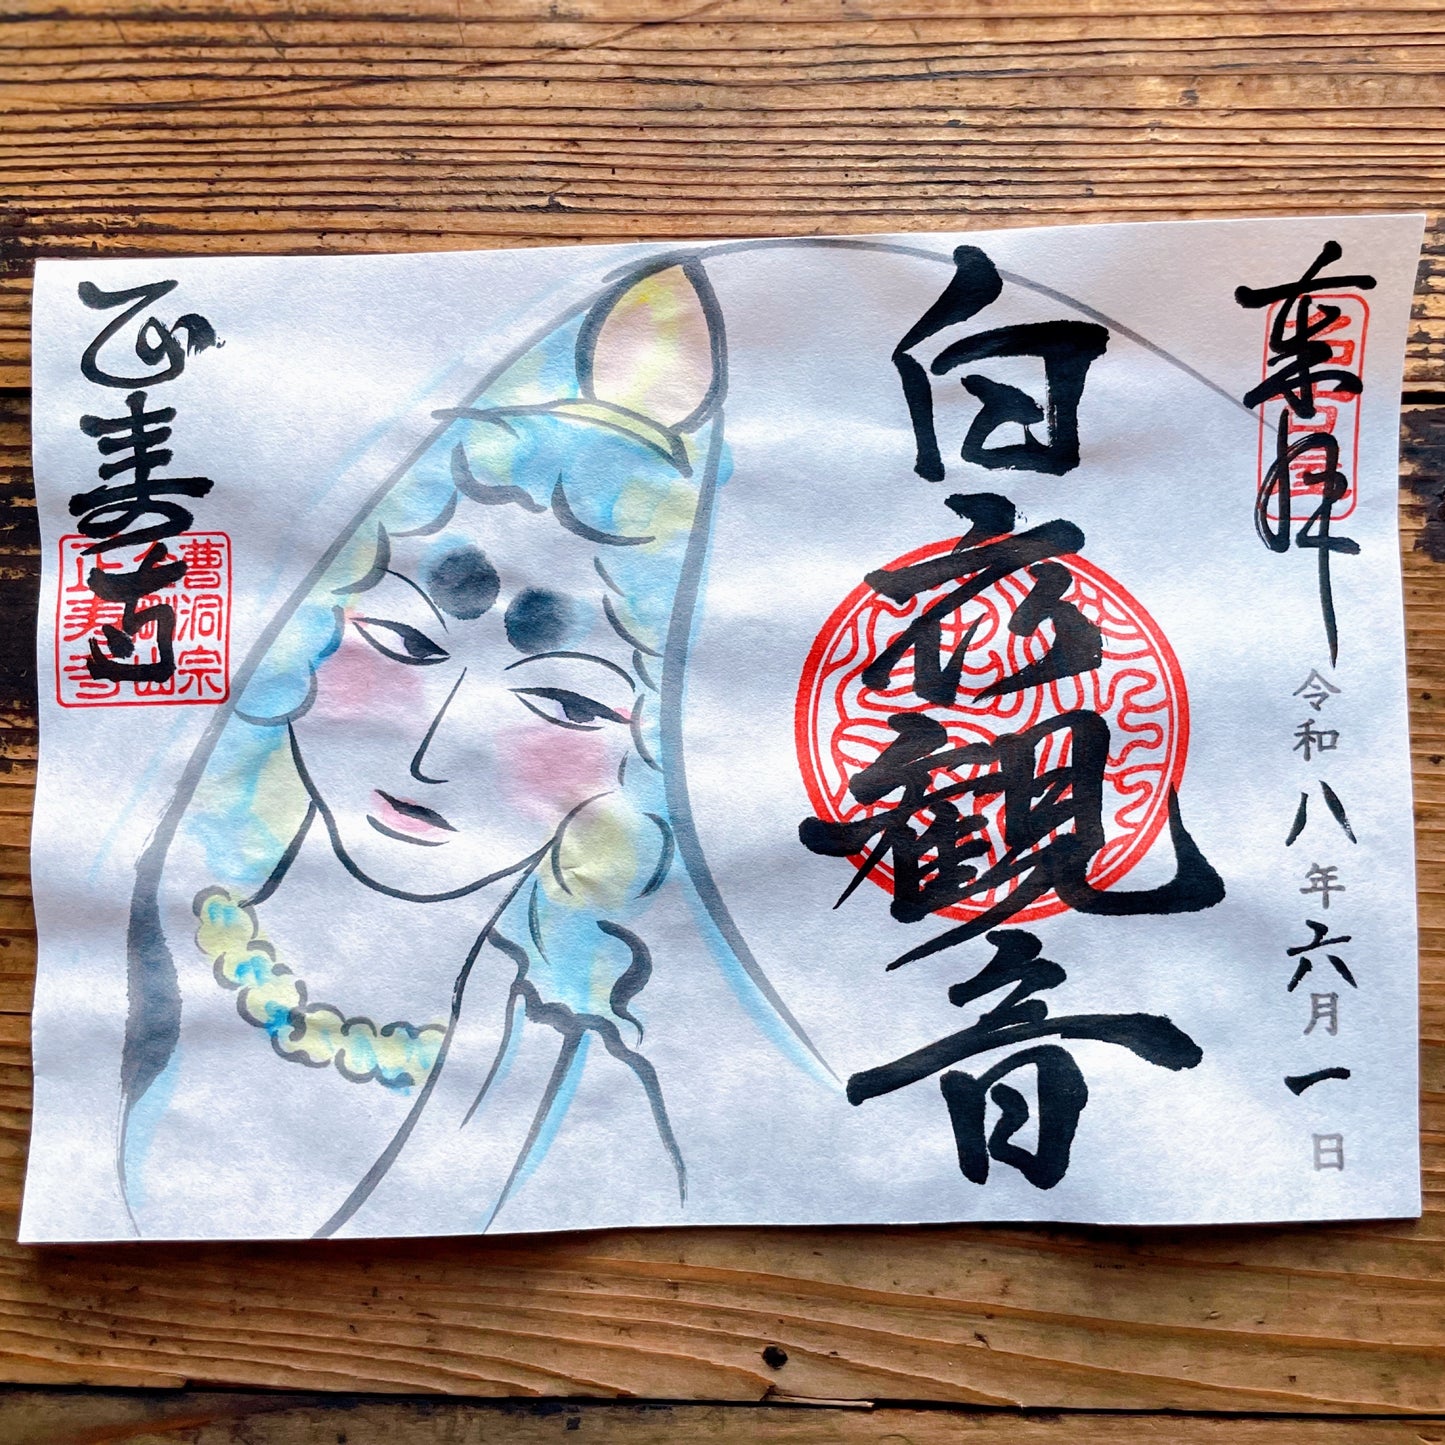 来拝
令和八年六月一日
白衣観音
正寿寺
曹洞宗
正寿寺